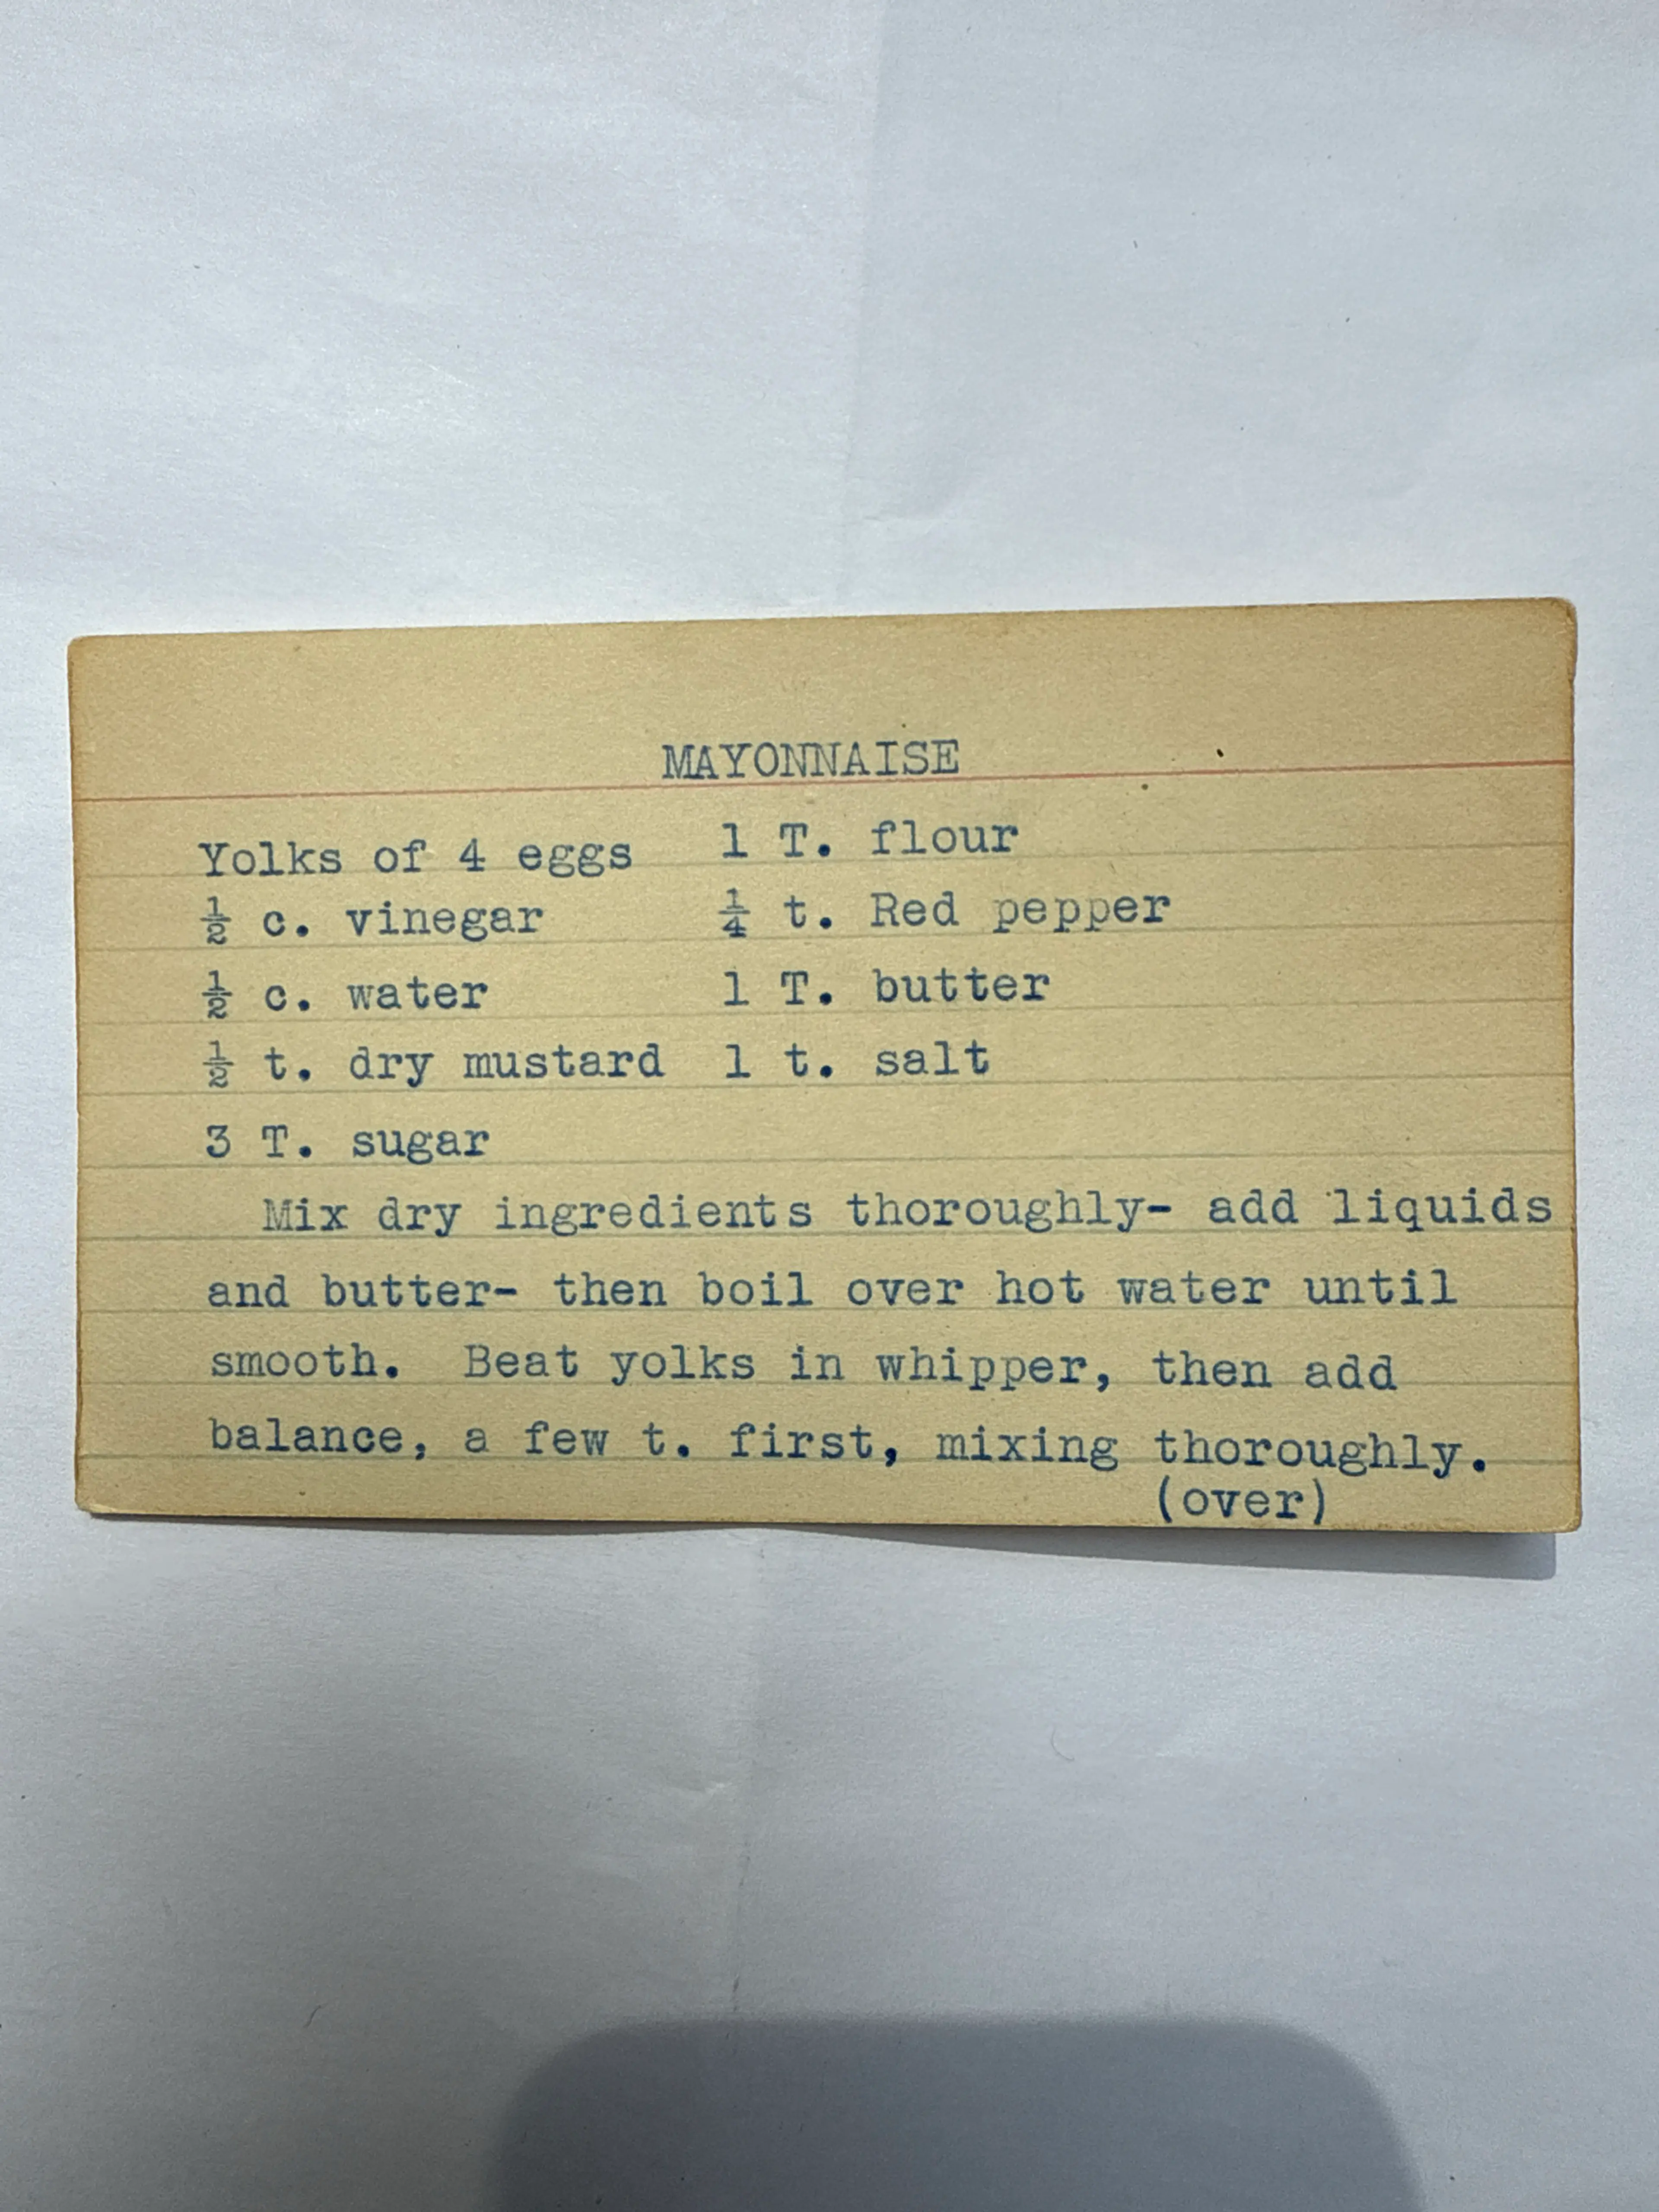 MAYONNAISE
Yolks of 4 eggs 1 T. flour
½ c. vinegar ¼ t. Red pepper
½ c. water 1 T. butter
½ t. dry mustard 1 t. salt
3 T. sugar
Mix dry ingredients thoroughly- add liquids
and butter- then boil over hot water until
smooth. Beat yolks in whipper, then add
balance, a few t. first, mixing thoroughly.
(over)